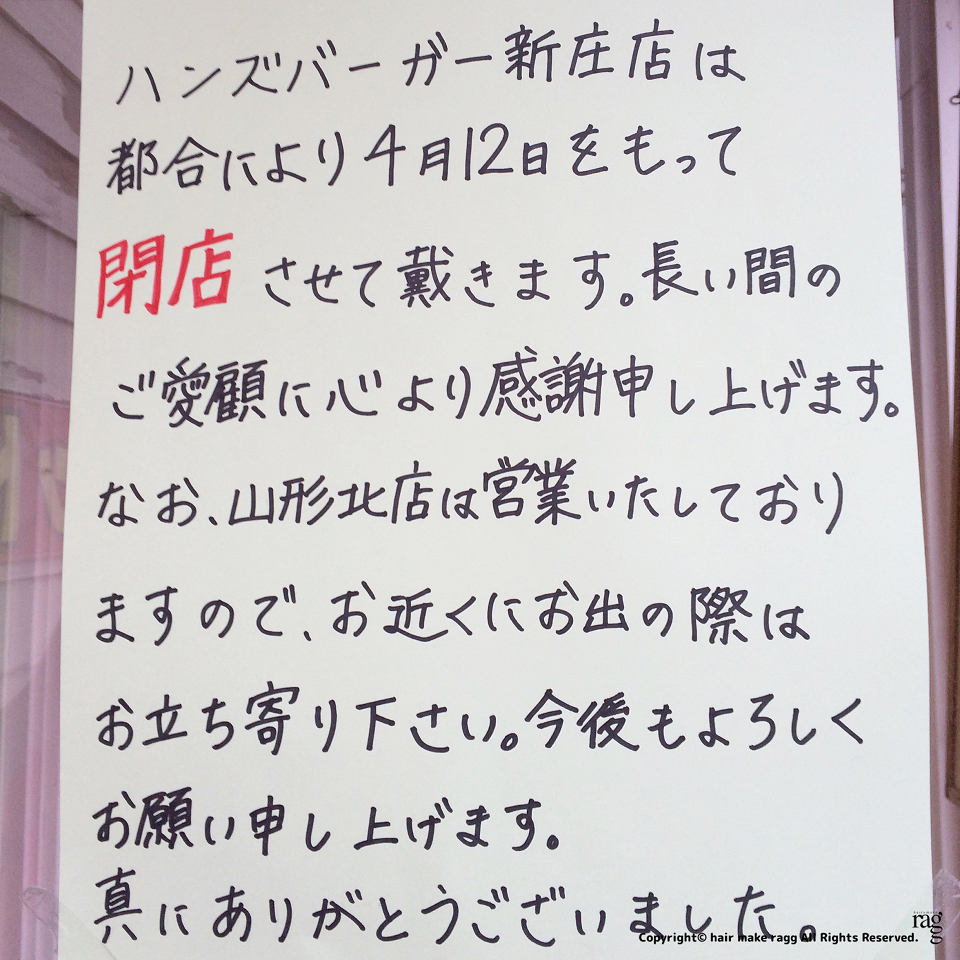 ハンズバーガー新庄店は
都合により4月12日をもって
閉店させて戴きます。長い間の
ご愛顧に心より感謝申し上げます。
なお、山形北店は営業いたしており
ますので、お近くにお出の際は
お立ち寄り下さい。今後もよろしく
お願い申し上げます。
真にありがとうございました。
rag
Copyright© hair make ragg All Rights Reserved.